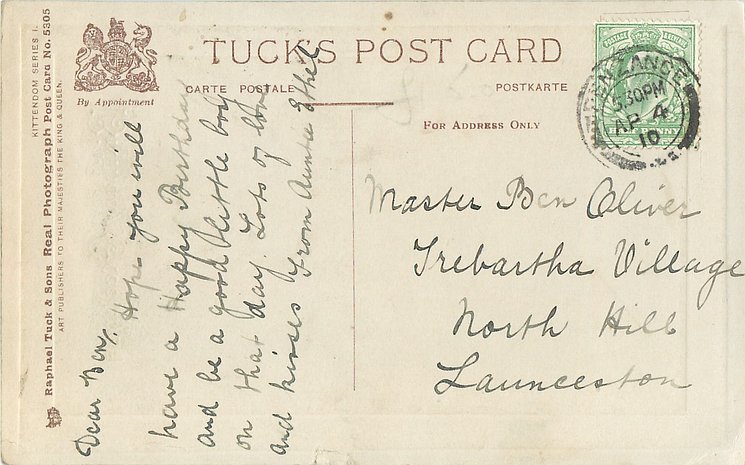 TUCK'S POST CARD
CARTE POSTALE
POSTKARTE
By Appointment
FOR ADDRESS ONLY
KITTENDOM SERIES I.
Raphael Tuck & Sons Real Photograph Post Card No. 5305
ART PUBLISHERS TO THEIR MAJESTIES THE KING & QUEEN.
Dear Ben, Hope you will
have a Happy Birthday
and be a good little boy
on that day. Lots of love
and kisses from Auntie Ethel
POSTAGE & REVENUE
HALF PENNY
PENZANCE
5.30PM
AP 4
10
Master Ben Oliver
Trebartha Village
North Hill
Launceston